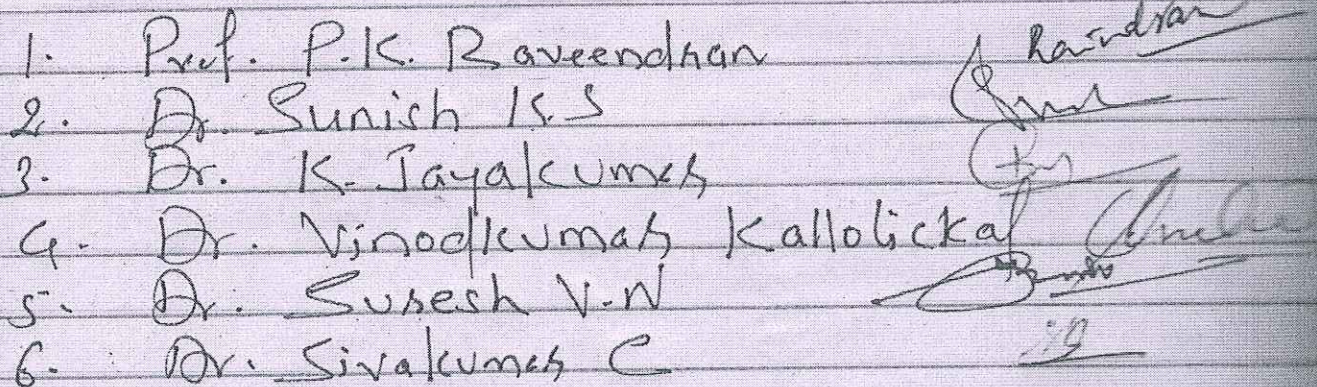 1. Prof. P.K. Raveendran Raindran
2. Dr. Sunish K.S
3. Dr. K. Jayakumar
4. Dr. Vinodkumar Kallolickal
5. Dr. Suresh V.N
6. Dr. Sivakumar C